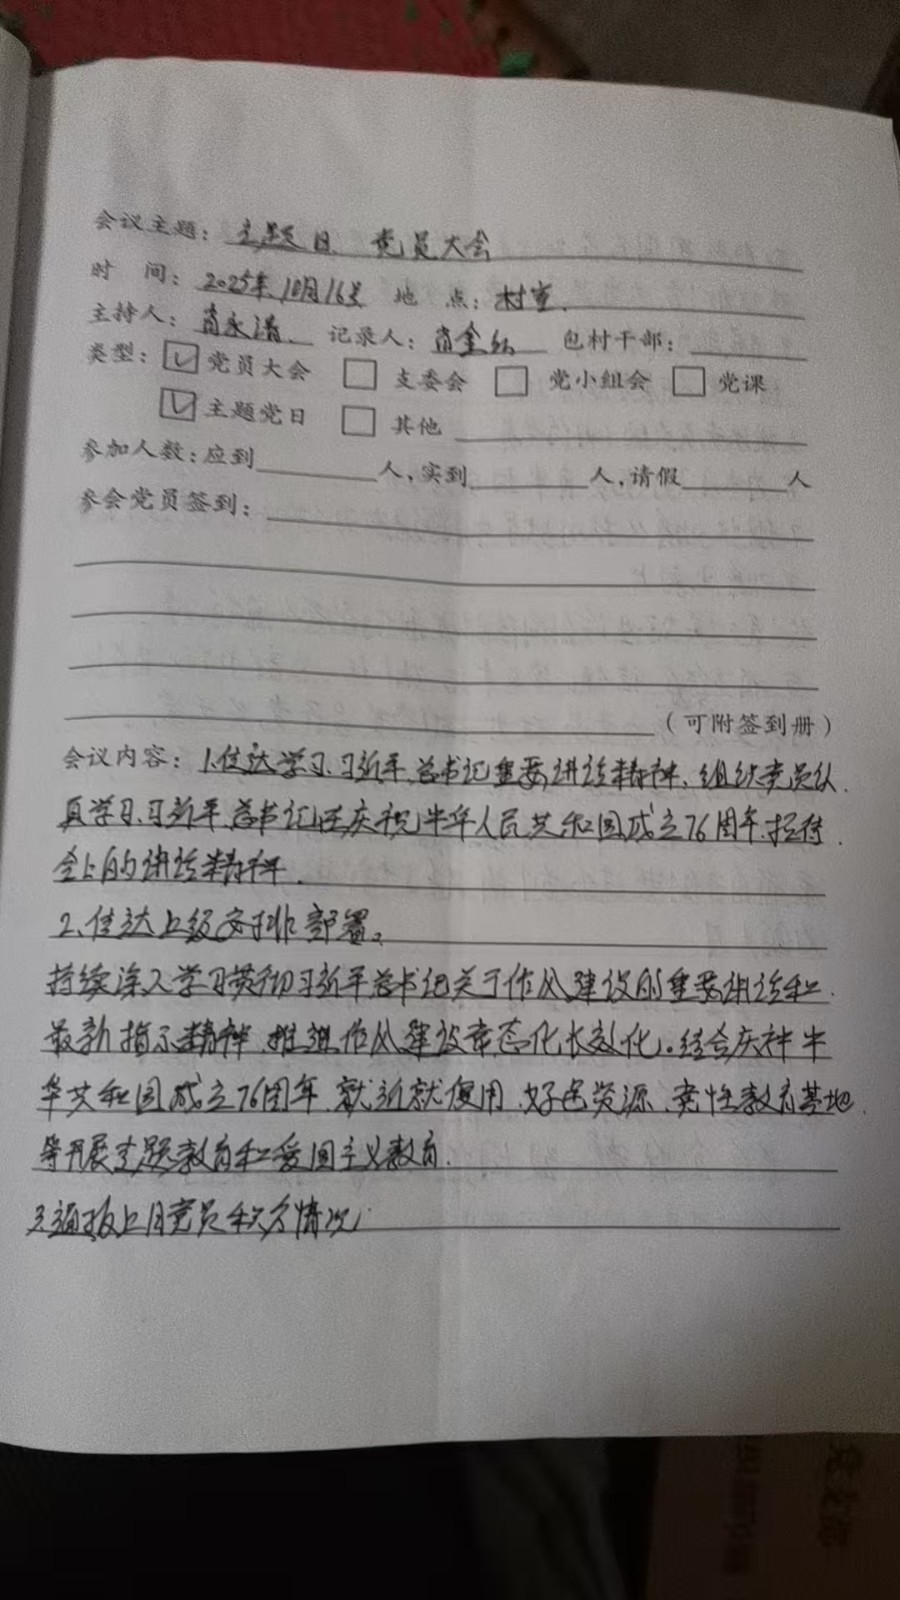 会议主题：主题日、党员大会
时 间：2025年10月16号 地 点：村室.
主持人：肖永清. 记录人：肖金 包村干部：
类型：☑党员大会 □支委会 □党小组会 □党课
☑主题党日 □其他
参加人数：应到 人，实到 人，请假 人
参会党员签到：
（可附签到册）
会议内容：1.传达学习习近平总书记重要讲话精神、组织党员认
真学习习近平总书记在庆祝中华人民共和国成立76周年招待
会上的讲话精神.
2、传达上级安排部署。
持续深入学习贯彻习近平总书记关于作风建设的重要讲话和
最新指示精神 推进作风建设常态化长效化。结合庆祝中
华共和国成立76周年、就近就便用好红色资源、党性教育基地
等开展主题教育和爱国主义教育.
3.通报上月党员积分情况;